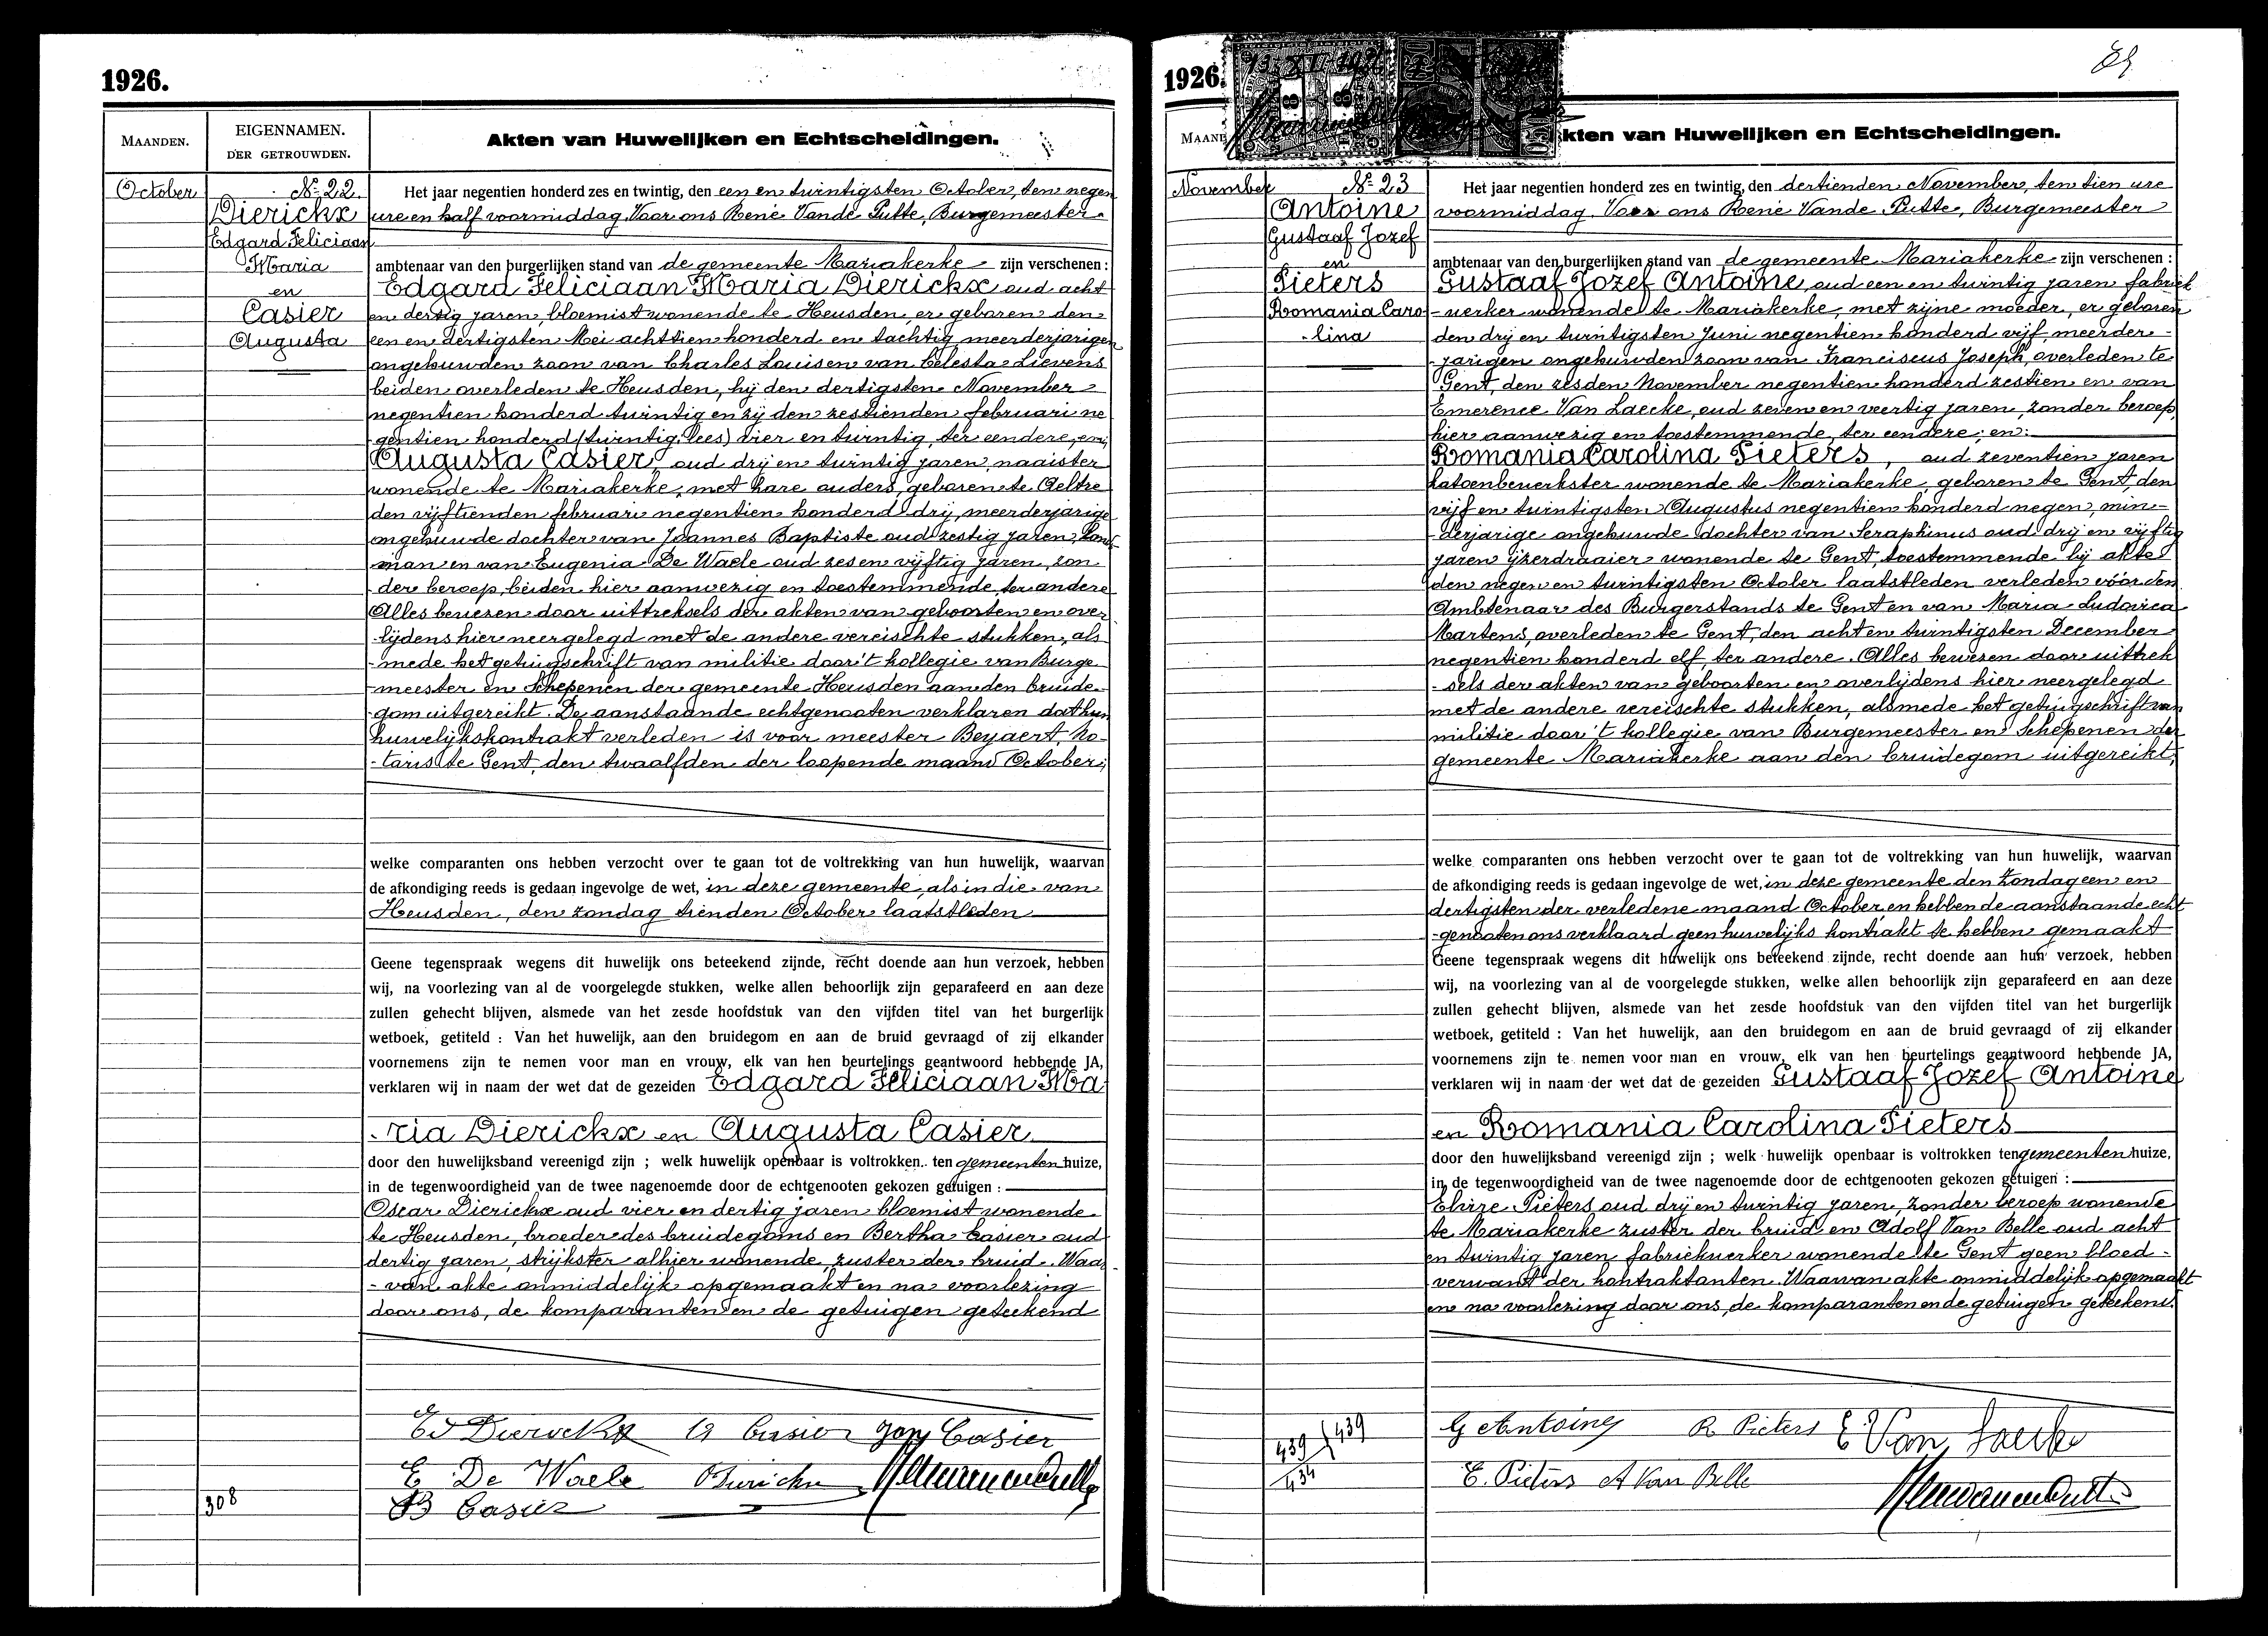 1926.
MAANDEN.
EIGENNAMEN.
DER GETROUWDEN.
Akten van Huwelijken en Echtscheidingen.
October
No 22.
Dierickx
Edgard Feliciaan
Maria
en
Casier
Augusta
Het jaar negentien honderd zes en twintig, den een en twintigsten October, ten negen
ure en half voormiddag. Voor ons René Vande Putte, Burgemeester
ambtenaar van den burgerlijken stand van de gemeente Mariakerke zijn verschenen :
Edgard Feliciaan Maria Dierickx oud acht
en dertig jaren, bloemist wonende te Heusden, er geboren den
een en dertigsten Mei achttien honderd en tachtig meerderjarigen
ongehuwden zoon van Charles Louis en van Celesta Lievens
beiden overleden te Heusden, hij den dertigsten November
negentien honderd twintig en zij den zestienden februari ne
-gentien honderd (twintig, lees) vier en twintig, ter eendere, en;
Augusta Casier, oud drij en twintig jaren, naaister
wonende te Mariakerke, met hare ouders, geboren te Aeltre
den vijftienden februari negentien honderd drij, meerderjarige
ongehuwde dochter van Joannes Baptiste oud zestig jaren, land-
man en van Eugenia De Waele oud zes en vijftig jaren, zon
-der beroep, beiden hier aanwezig en toestemmende, ter andere
Alles bewezen door uittreksels der akten van geboorten en over
-lijdens hier neergelegd met de andere vereischte stukken, als
-mede het getuigschrift van militie door 't kollegie van Burge
meester en Schepenen der gemeente Heusden aan den bruide-
gom uitgereikt. De aanstaande echtgenooten verklaren dat hun
huwelijkskontrakt verleden is voor meester Beyaert, No-
-taris te Gent, den twaalfden der loopende maand October;
welke comparanten ons hebben verzocht over te gaan tot de voltrekking van hun huwelijk, waarvan
de afkondiging reeds is gedaan ingevolge de wet, in deze gemeente, als in die van
Heusden, den zondag tienden October laatstleden
Geene tegenspraak wegens dit huwelijk ons beteekend zijnde, recht doende aan hun verzoek, hebben
wij, na voorlezing van al de voorgelegde stukken, welke allen behoorlijk zijn geparafeerd en aan deze
zullen gehecht blijven, alsmede van het zesde hoofdstuk van den vijfden titel van het burgerlijk
wetboek, getiteld : Van het huwelijk, aan den bruidegom en aan de bruid gevraagd of zij elkander
voornemens zijn te nemen voor man en vrouw, elk van hen beurtelings geantwoord hebbende JA,
verklaren wij in naam der wet dat de gezeiden Edgard Feliciaan Ma
-ria Dierickx en Augusta Casier
door den huwelijksband vereenigd zijn ; welk huwelijk openbaar is voltrokken ten gemeentenhuize,
in de tegenwoordigheid van de twee nagenoemde door de echtgenooten gekozen getuigen :
Oscar Dierickx oud vier en dertig jaren bloemist wonende
te Heusden, broeder des bruidegoms en Bertha Casier oud
dertig jaren, strijkster alhier wonende, zuster der bruid. Waar-
-van akte onmiddelijk opgemaakt en na voorlezing
door ons, de komparanten en de getuigen geteekend
Ed Dierickx A Casier Jan Casier
E De Waele O Dierickx
B Casier
308
1926.
89
MAAND
Akten van Huwelijken en Echtscheidingen.
November
No 23
Antoine
Gustaaf Jozef
en
Pieters
Romania Caro
-lina
Het jaar negentien honderd zes en twintig, den dertienden November, ten tien ure
voormiddag. Voor ons René Vande Putte, Burgemeester
ambtenaar van den burgerlijken stand van de gemeente Mariakerke zijn verschenen :
Gustaaf Jozef Antoine, oud een en twintig jaren fabriek
-werker wonende te Mariakerke, met zijne moeder, er geboren
den drij en twintigsten Juni negentien honderd vijf, meerder-
-jarigen ongehuwden zoon van Franciscus Joseph, overleden te
Gent, den zesden November negentien honderd zestien en van
Emerence Van Laecke, oud zeven en veertig jaren, zonder beroep,
hier aanwezig en toestemmende, ter eendere; en:
Romania Carolina Pieters, oud zeventien jaren
katoenbewerkster wonende te Mariakerke, geboren te Gent, den
vijf en twintigsten Augustus negentien honderd negen, min-
-derjarige ongehuwde dochter van Seraphinus oud drij en vijftig
jaren ijzerdraaier wonende te Gent, toestemmende bij akte
den negen en twintigsten October laatstleden verleden vóór den
Ambtenaar des Burgerstands te Gent en van Maria Ludovica
Martens, overleden te Gent, den acht en twintigsten December
negentien honderd elf, ter andere. Alles bewezen door uittrek
-sels der akten van geboorten en overlijdens hier neergelegd
met de andere vereischte stukken, alsmede het getuigschrift van
militie door 't kollegie van Burgemeester en Schepenen der
gemeente Mariakerke aan den bruidegom uitgereikt;
welke comparanten ons hebben verzocht over te gaan tot de voltrekking van hun huwelijk, waarvan
de afkondiging reeds is gedaan ingevolge de wet, in deze gemeente den Zondag een en
dertigsten der verledene maand October, en hebben de aanstaande echt
-genooten ons verklaard geen huwelijks kontrakt te hebben gemaakt
Geene tegenspraak wegens dit huwelijk ons beteekend zijnde, recht doende aan hun verzoek, hebben
wij, na voorlezing van al de voorgelegde stukken, welke allen behoorlijk zijn geparafeerd en aan deze
zullen gehecht blijven, alsmede van het zesde hoofdstuk van den vijfden titel van het burgerlijk
wetboek, getiteld : Van het huwelijk, aan den bruidegom en aan de bruid gevraagd of zij elkander
voornemens zijn te nemen voor man en vrouw, elk van hen beurtelings geantwoord hebbende JA,
verklaren wij in naam der wet dat de gezeiden Gustaaf Jozef Antoine
en Romania Carolina Pieters
door den huwelijksband vereenigd zijn ; welk huwelijk openbaar is voltrokken ten gemeentenhuize,
in de tegenwoordigheid van de twee nagenoemde door de echtgenooten gekozen getuigen :
Elvire Pieters oud drij en twintig jaren, zonder beroep wonende
te Mariakerke zuster der bruid en Adolf Van Belle oud acht
en twintig jaren fabriekwerker wonende te Gent geen bloed-
verwant der kontraktanten. Waarvan akte onmiddelijk opgemaakt
en na voorlezing door ons, de komparanten en de getuigen geteekend.
439 / 439
434
G Antoine R Pieters E Van Laecke
E. Pieters A Van Belle